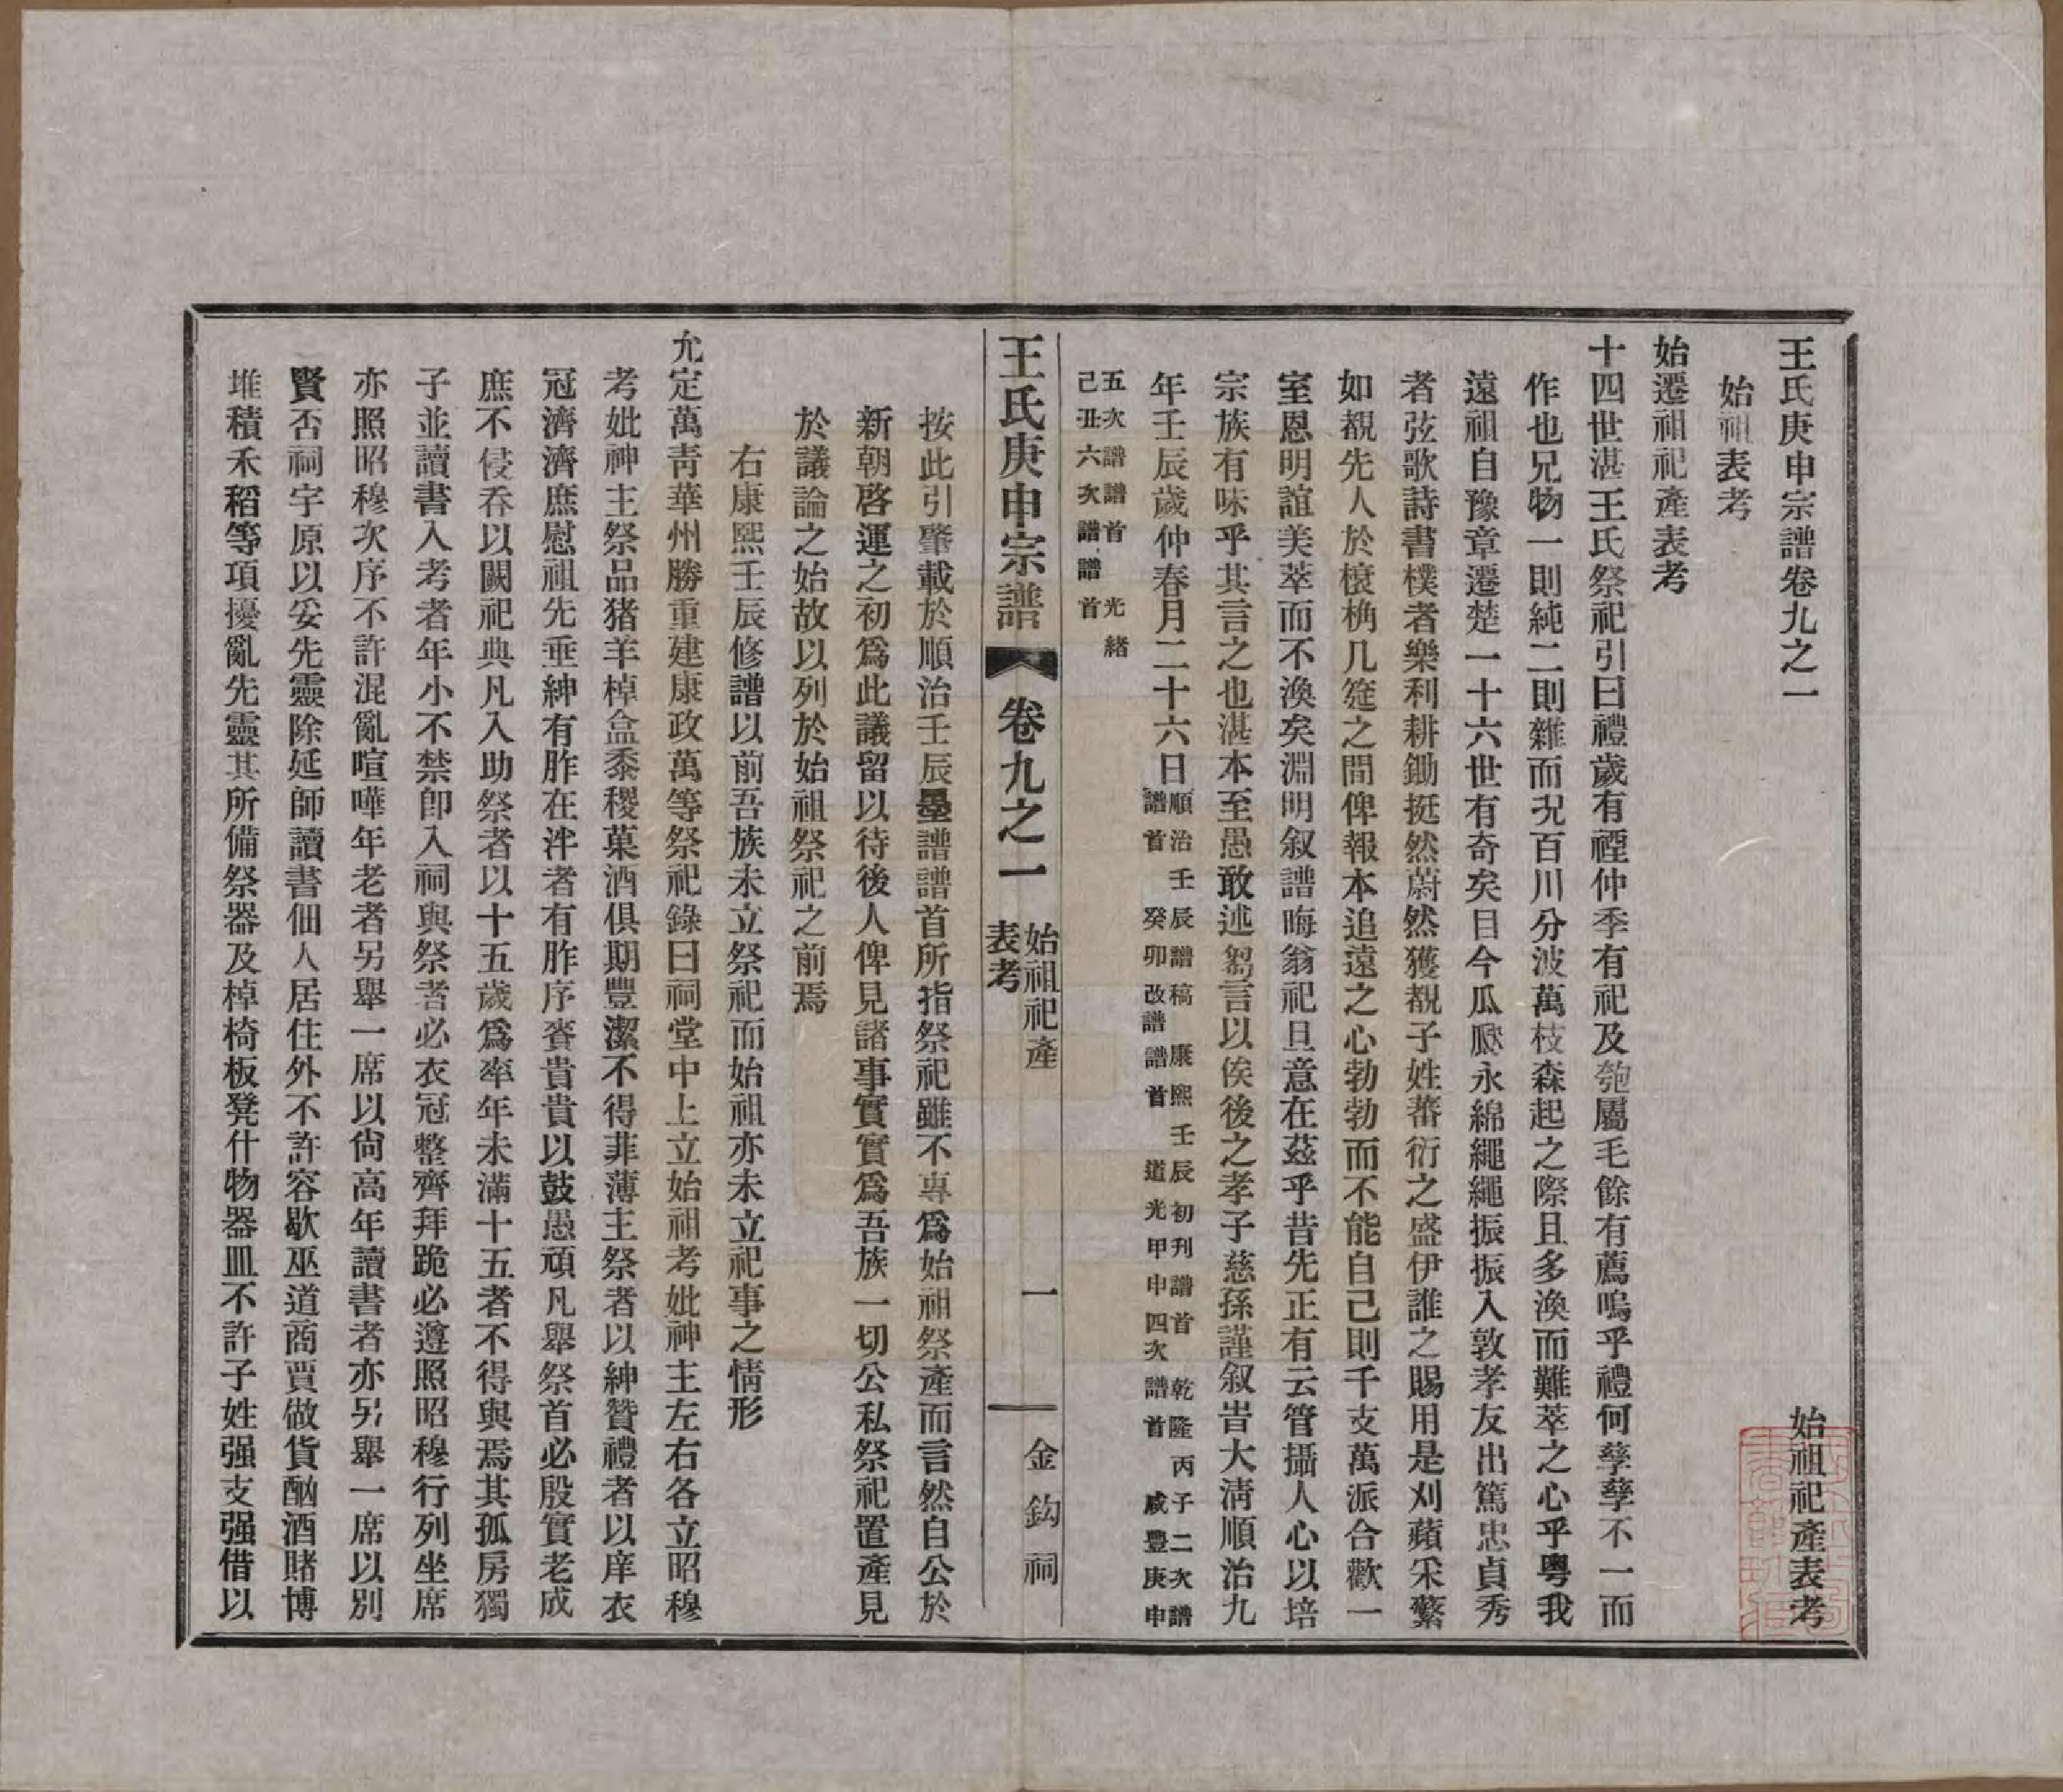 王氏庚申宗譜卷九之一　始祖祀產表考
始祖表考
始遷祖祀產表考
十四世湛王氏祭祀引曰禮歲有禋仲季有祀及匏屬毛餘有薦嗚乎禮何孳孳不一而
作也兄物一則純二則雜而況百川分波萬枝森起之際且多渙而難萃之心乎粵我
遠祖自豫章遷楚一十六世有奇矣目今瓜瓞永綿繩繩振振入敦孝友出篤忠貞秀
者弦歌詩書樸者樂利耕鋤挺然蔚然獲覩子姓蕃衍之盛伊誰之賜用是刈蘋采蘩
如覩先人於榱桷几筵之間俾報本追遠之心勃勃而不能自已則千支萬派合歡一
室恩明誼美萃而不渙矣淵明叙譜晦翁祀旦意在茲乎昔先正有云管攝人心以培
宗族有味乎其言之也湛本至愚敢述芻言以俟後之孝子慈孫謹叙旹大清順治九
年壬辰歲仲春月二十六日順治壬辰譜稿譜首　康熙壬辰初刋譜首　乾隆丙子二次譜譜首　癸卯改譜譜首　道光甲申四次譜首　咸豐庚申
五次譜譜首　光緒己丑六次譜譜首
王氏庚申宗譜　卷九之一　始祖祀產表考　一　金鈎祠
按此引肇載於順治壬辰墨譜譜首所指祭祀雖不專爲始祖祭產而言然自公於
新朝啓運之初爲此議留以待後人俾見諸事實實爲吾族一切公私祭祀置產見
於議論之始故以列於始祖祭祀之前焉
右康熙壬辰修譜以前吾族未立祭祀而始祖亦未立祀事之情形
允定萬靑華州勝重建康政萬等祭祀錄曰祠堂中上立始祖考妣神主左右各立昭穆
考妣神主祭品猪羊棹盒黍稷菓酒俱期豐潔不得菲薄主祭者以紳贊禮者以庠衣
冠濟濟庶慰祖先垂紳有胙在泮者有胙序賚貴貴以鼓愚頑凡舉祭首必殷實老成
庶不侵呑以闕祀典凡入助祭者以十五歲爲率年未滿十五者不得與焉其孤房獨
子並讀書入考者年小不禁卽入祠與祭者必衣冠整齊拜跪必遵照昭穆行列坐席
亦照昭穆次序不許混亂喧嘩年老者另舉一席以尙高年讀書者亦另舉一席以別
賢否祠宇原以妥先靈除延師讀書佃人居住外不許容歇巫道商賈做貨酗酒賭博
堆積禾稻等項擾亂先靈其所備祭器及棹椅板凳什物器皿不許子姓强支强借以